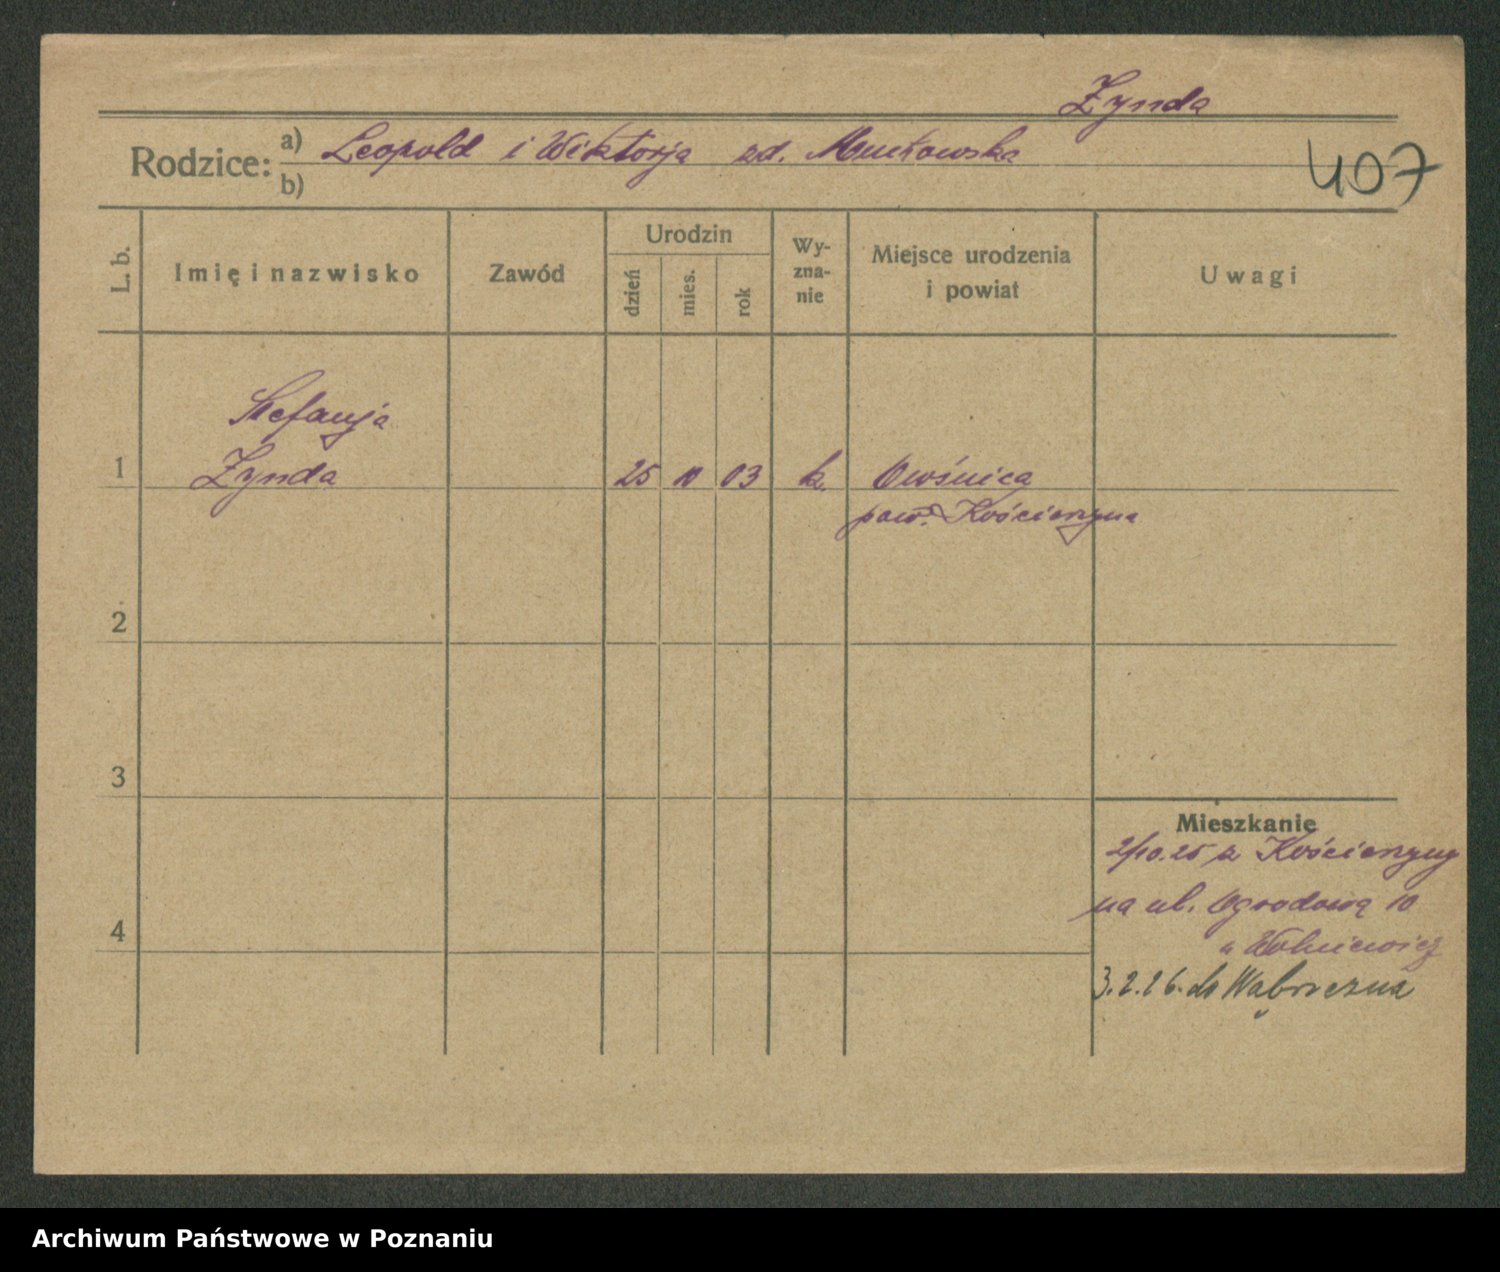 Żynda
Rodzice: a) Leopold i Wiktorja zd.
b)
407
L. b.
Imię i nazwisko
Zawód
Urodzin
dzień
mies.
rok
Wy-
zna-
nie
Miejsce urodzenia
i powiat
Uwagi
Stefanja
1 Żynda 25 10 03 k. Owśnica
pow. Kościerzyna
2
3
4
Mieszkanie
2/10.25 z Kościerzyny
na ul. Ogrodową 10
u Wolniewicz
3.2.26. do Wąbrzezna
Archiwum Państwowe w Poznaniu